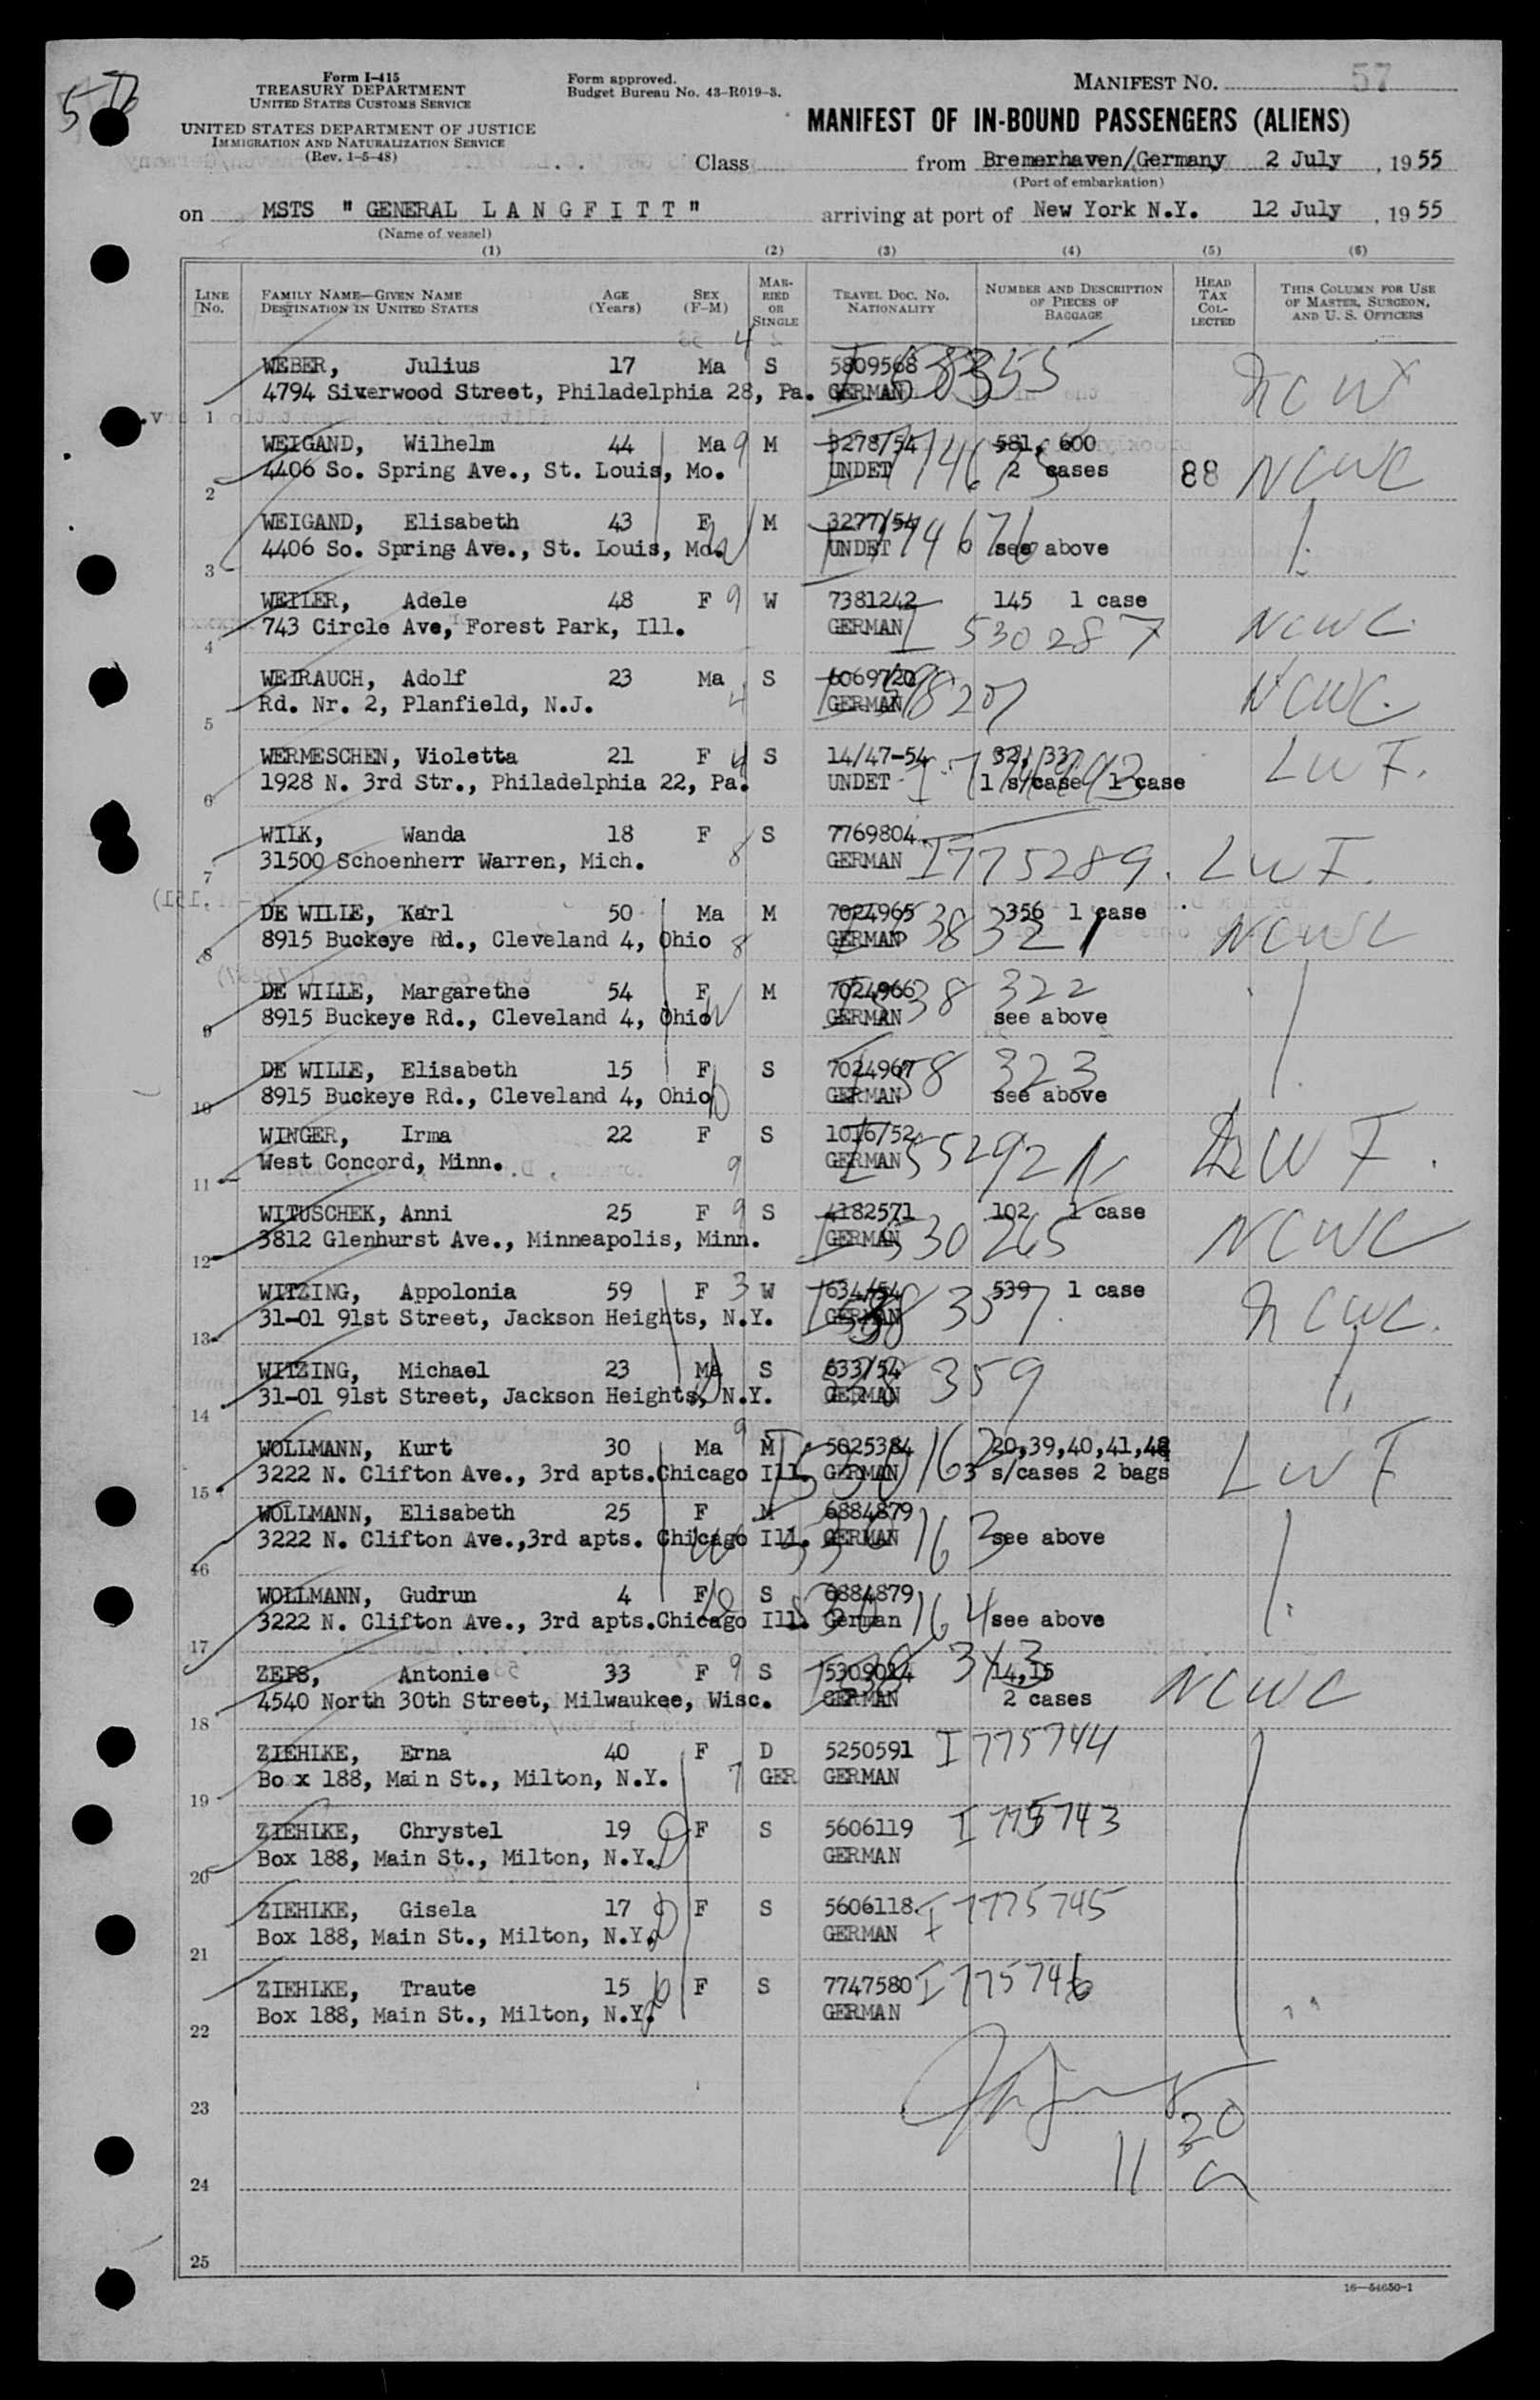 57
Form I-415
TREASURY DEPARTMENT
UNITED STATES CUSTOMS SERVICE
UNITED STATES DEPARTMENT OF JUSTICE
IMMIGRATION AND NATURALIZATION SERVICE
(Rev. 1-5-48)
Form approved.
Budget Bureau No. 43-R019-3.
MANIFEST NO. 57
MANIFEST OF IN-BOUND PASSENGERS (ALIENS)
Class from Bremerhaven/Germany 2 July, 1955
(Port of embarkation)
on MSTS " GENERAL LANGFITT" arriving at port of New York N.Y. 12 July, 1955
(Name of vessel)
(1) (2) (3) (4) (5) (6)
LINE NO. FAMILY NAME—GIVEN NAME DESTINATION IN UNITED STATES AGE (Years) SEX (F-M) MARRIED OR SINGLE TRAVEL DOC. NO. NATIONALITY NUMBER AND DESCRIPTION OF PIECES OF BAGGAGE HEAD TAX COLLECTED THIS COLUMN FOR USE OF MASTER, SURGEON, AND U. S. OFFICERS
WEBER, Julius 17 Ma 4 S 5809568
1 4794 Siverwood Street, Philadelphia 28, Pa. GERMAN
WEIGAND, Wilhelm 44 Ma 9 M 3278/54 581, 600
2 4406 So. Spring Ave., St. Louis, Mo. UNDET 2 cases 88 NCWC
WEIGAND, Elisabeth 43 F M 3277/54
3 4406 So. Spring Ave., St. Louis, Mo. UNDET see above
WEILER, Adele 48 F 9 W 7381242 145 1 case
4 743 Circle Ave, Forest Park, Ill. GERMAN I 530287 NCWC
WEIRAUCH, Adolf 23 Ma S 6069720
5 Rd. Nr. 2, Planfield, N.J. 4 GERMAN NCWC
WERMESCHEN, Violetta 21 F 4 S 14/47-54 32, 33 LWF.
6 1928 N. 3rd Str., Philadelphia 22, Pa. UNDET 1 s/case 1 case
WILK, Wanda 18 F S 7769804
7 31500 Schoenherr Warren, Mich. 8 GERMAN I775289. LWF.
DE WILLE, Karl 50 Ma M 7024965 356 1 case
8 8915 Buckeye Rd., Cleveland 4, Ohio 8 GERMAN 538321 NCWC
DE WILLE, Margarethe 54 F M 7024966 538 322
9 8915 Buckeye Rd., Cleveland 4, Ohio W GERMAN see above
DE WILLE, Elisabeth 15 F S 7024967 323
10 8915 Buckeye Rd., Cleveland 4, Ohio D GERMAN see above
WINGER, Irma 22 F S 1016/52
11 West Concord, Minn. 9 GERMAN LWF.
WITUSCHEK, Anni 25 F 9 S 4182571 102 1 case
12 3812 Glenhurst Ave., Minneapolis, Minn. GERMAN 530265 NCWC
WITZING, Appolonia 59 F 3 W 634/54 539 1 case
13 31-01 91st Street, Jackson Heights, N.Y. GERMAN 357 NCWC.
WITZING, Michael 23 Ma S 633/54 359
14 31-01 91st Street, Jackson Heights, N.Y. GERMAN
WOLLMANN, Kurt 30 Ma 9 M 5025384 20,39,40,41,42
15 3222 N. Clifton Ave., 3rd apts.Chicago Ill. GERMAN 3 s/cases 2 bags LWF
WOLLMANN, Elisabeth 25 F M 6884879
16 3222 N. Clifton Ave.,3rd apts. Chicago Ill. GERMAN 163 see above
WOLLMANN, Gudrun 4 F S 6884879
17 3222 N. Clifton Ave., 3rd apts.Chicago Ill. German 164 see above
ZEPS, Antonie 33 F 9 S 5309014 14,15
18 4540 North 30th Street, Milwaukee, Wisc. GERMAN 2 cases NCWC
ZIEHLKE, Erna 40 F D 5250591 I775744
19 Box 188, Main St., Milton, N.Y. 7 GER GERMAN
ZIEHLKE, Chrystel 19 F S 5606119 I775743
20 Box 188, Main St., Milton, N.Y. GERMAN
ZIEHLKE, Gisela 17 F S 5606118 I775745
21 Box 188, Main St., Milton, N.Y. GERMAN
ZIEHLKE, Traute 15 F S 7747580 I775746
22 Box 188, Main St., Milton, N.Y. GERMAN
23
24 11 20 a
25
16—54650-1